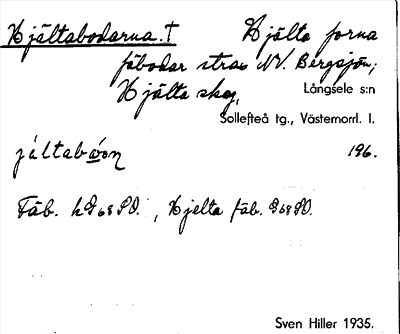 Hjältabodarna. † Hjälta forna
fäbodar strax NV. Bergsjön;
Hjälta skog, Långsele s:n
Sollefteå tg., Västernorrl. l.
jältabɷon 196.
Fäb. hG68SO., Hjelta fäb. G68SO.
Sven Hiller 1935.